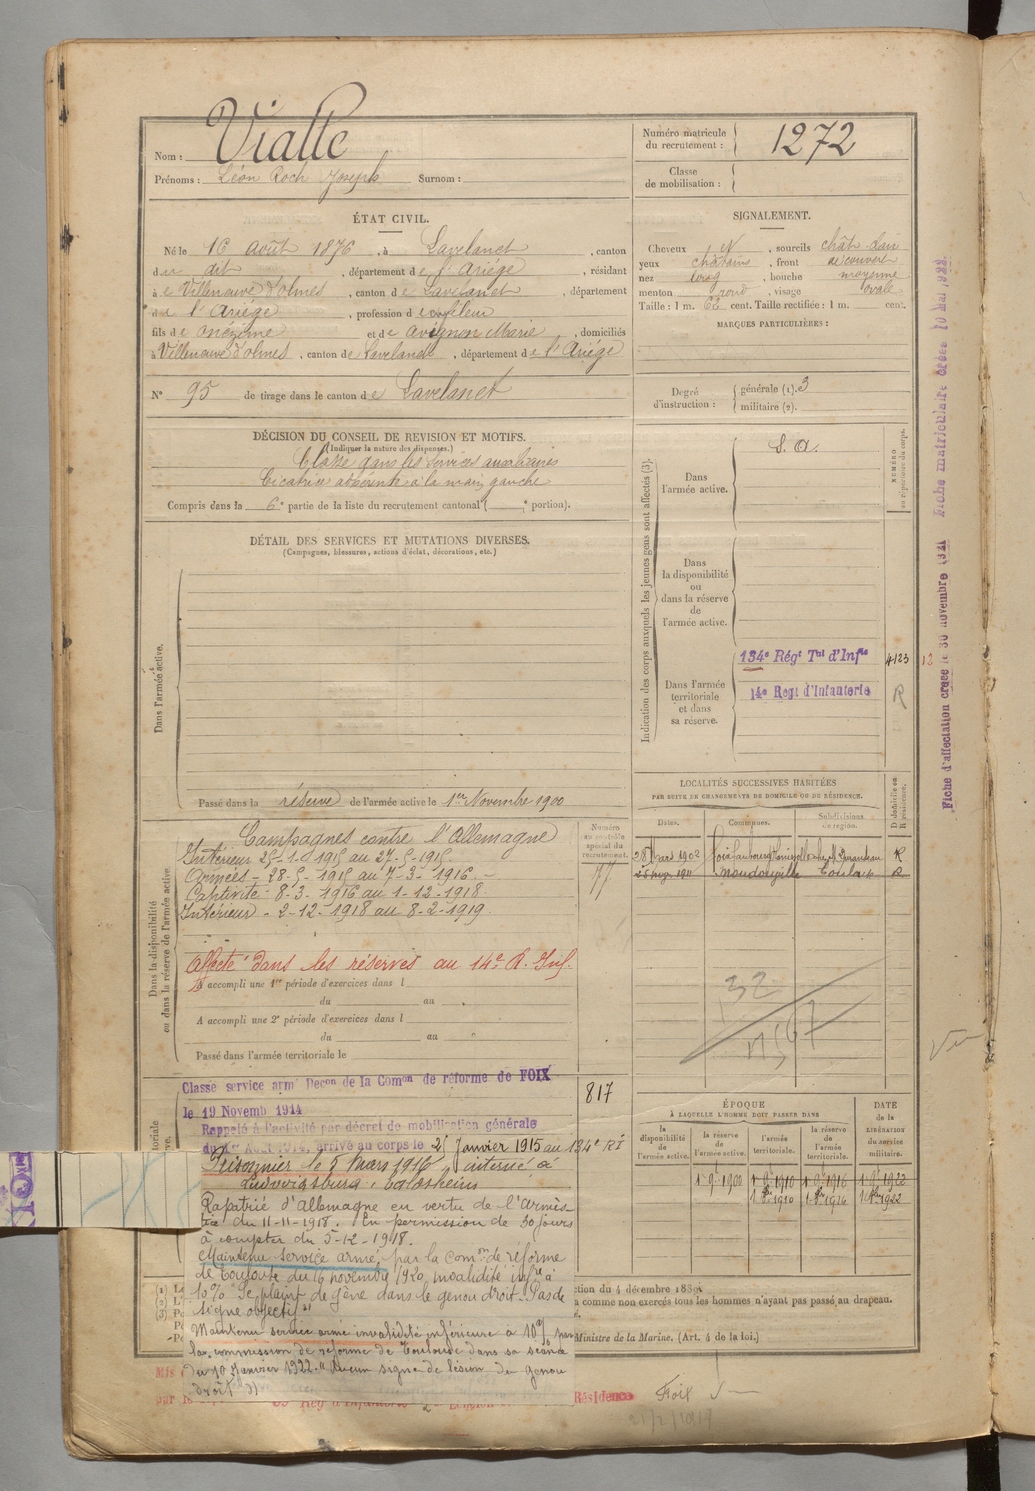 Nom : Vialle
Prénoms : Léon Roch Joseph Surnom :
Numéro matricule du recrutement : 1272
Classe de mobilisation :
ÉTAT CIVIL.
Né le 16 août 1876, à Lavelanet, canton
du dit, département de l'Ariège, résidant
à Villeneuve d'olmes, canton de Lavelanet, département
de l'Ariège, profession de
fils de onézime et de avignon Marie, domiciliés
à Villeneuve d'olmes, canton de Lavelanet, département de l'Ariège
N° 95 de tirage dans le canton de Lavelanet
SIGNALEMENT.
Cheveux N, sourcils chât. clair
yeux châtains, front découvert
nez long, bouche moyenne
menton rond, visage ovale
Taille : 1 m. 62 cent. Taille rectifiée : 1 m. cent.
MARQUES PARTICULIÈRES :
Degré d'instruction : générale (1). 3
militaire (2).
DÉCISION DU CONSEIL DE REVISION ET MOTIFS.
(Indiquer la nature des dispenses.)
Classé dans les services auxiliaires
Cicatrice adhérente à la main gauche
Compris dans la 6e partie de la liste du recrutement cantonal ( e portion).
DÉTAIL DES SERVICES ET MUTATIONS DIVERSES.
(Campagnes, blessures, actions d'éclat, décorations, etc.)
Dans l'armée active.
Passé dans la réserve de l'armée active le 1er Novembre 1900
Indication des corps auxquels les jeunes gens sont affectés (3).
NUMÉRO au répertoire du corps.
Dans l'armée active.
S. A.
Dans la disponibilité ou dans la réserve de l'armée active.
Dans l'armée territoriale et dans sa réserve.
134e Régt Tal d'Infie 4123 12
14e Regt d'Infanterie R
Fiche d'affectation créée le 30 novembre 1921 Fiche matriculaire créée 10 Mai 1922
Dans la disponibilité ou dans la réserve de l'armée active.
Numéro au contrôle spécial du recrutement.
77
Campagnes contre l'Allemagne
Intérieur 25-1-1915 au 27-5-1915.
Armées - 28-5-1915 au 7-3-1916.
Captivité - 8-3-1916 au 1-12-1918
Intérieur - 2-12-1918 au 8-2-1919.
Affecté dans les réserves au 14e R. Inf.
A accompli une 1re période d'exercices dans l
du au
A accompli une 2e période d'exercices dans l
du au
Passé dans l'armée territoriale le
LOCALITÉS SUCCESSIVES HABITÉES
PAR SUITE DE CHANGEMENTS DE DOMICILE OU DE RÉSIDENCE.
Dates. Communes. Subdivisions de région. D domicile ou R résidence.
28 Mars 1902 Foix R
1911 Mondouzille Toulouse R
32
Classé service armé Décon de la Comon de réforme de FOIX
le 19 Novemb 1914
817
Rappelé à l'activité par décret de mobilisation générale
du 1er Aout 1914, arrivé au corps le 25 Janvier 1915 au 134e RI
Prisonnier le 8 Mars 1916, interné à
Ludwigsburg,
Rapatrié d'Allemagne en vertu de l'Armis-
tice du 11-11-1918. En permission de 30 jours
à compter du 5-12-1918.
Maintenu service armé, par la Comon de réforme
de Toulouse du 16 novembre 1920, invalidité infre à
10% "Se plaint de gêne dans le genou droit. Pas de
signe objectif"
Maintenu service armé invalidité inférieure à 10% par
la commission de réforme de Toulouse dans sa séance
du 10 Janvier 1922. "Aucun signe de lésion du genou
droit"
ÉPOQUE
À LAQUELLE L'HOMME DOIT PASSER DANS
DATE de la LIBÉRATION du service militaire.
la disponibilité de l'armée active. la réserve de l'armée active. l'armée territoriale. la réserve de l'armée territoriale.
1 9bre 1900 1 9bre 1910 1 9bre 1916 1 9bre 1922
1 8bre 1910 1 8bre 1916 1 8bre 1922
ction du 4 décembre 1889
a comme non exercés tous les hommes n'ayant pas passé au drapeau.
Ministre de la Marine. (Art. 4 de la loi.)
Résidence
Foix